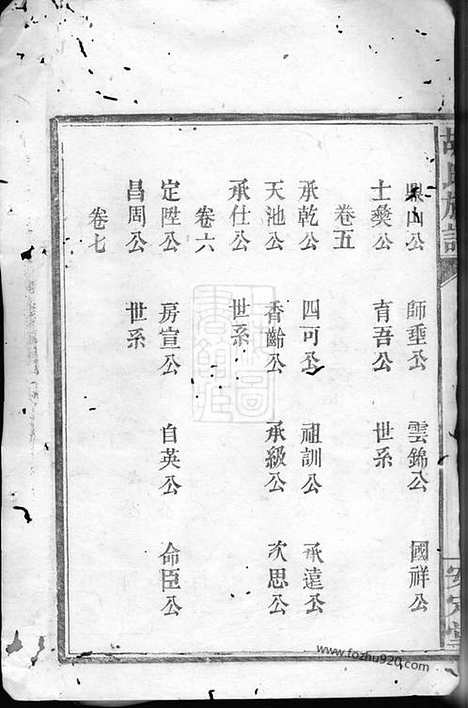 胡氏族譜
安定堂
鼎山公 師垂公 雲錦公 國祥公
士爕公 育吾公 世系
卷五
承乾公 四可公 祖訓公 承遠公
天池公 香齡公 承級公 次思公
承仕公 世系
卷六
定陞公 房宣公 自英公 命臣公
昌周公 世系
卷七
www.fozhu920.com